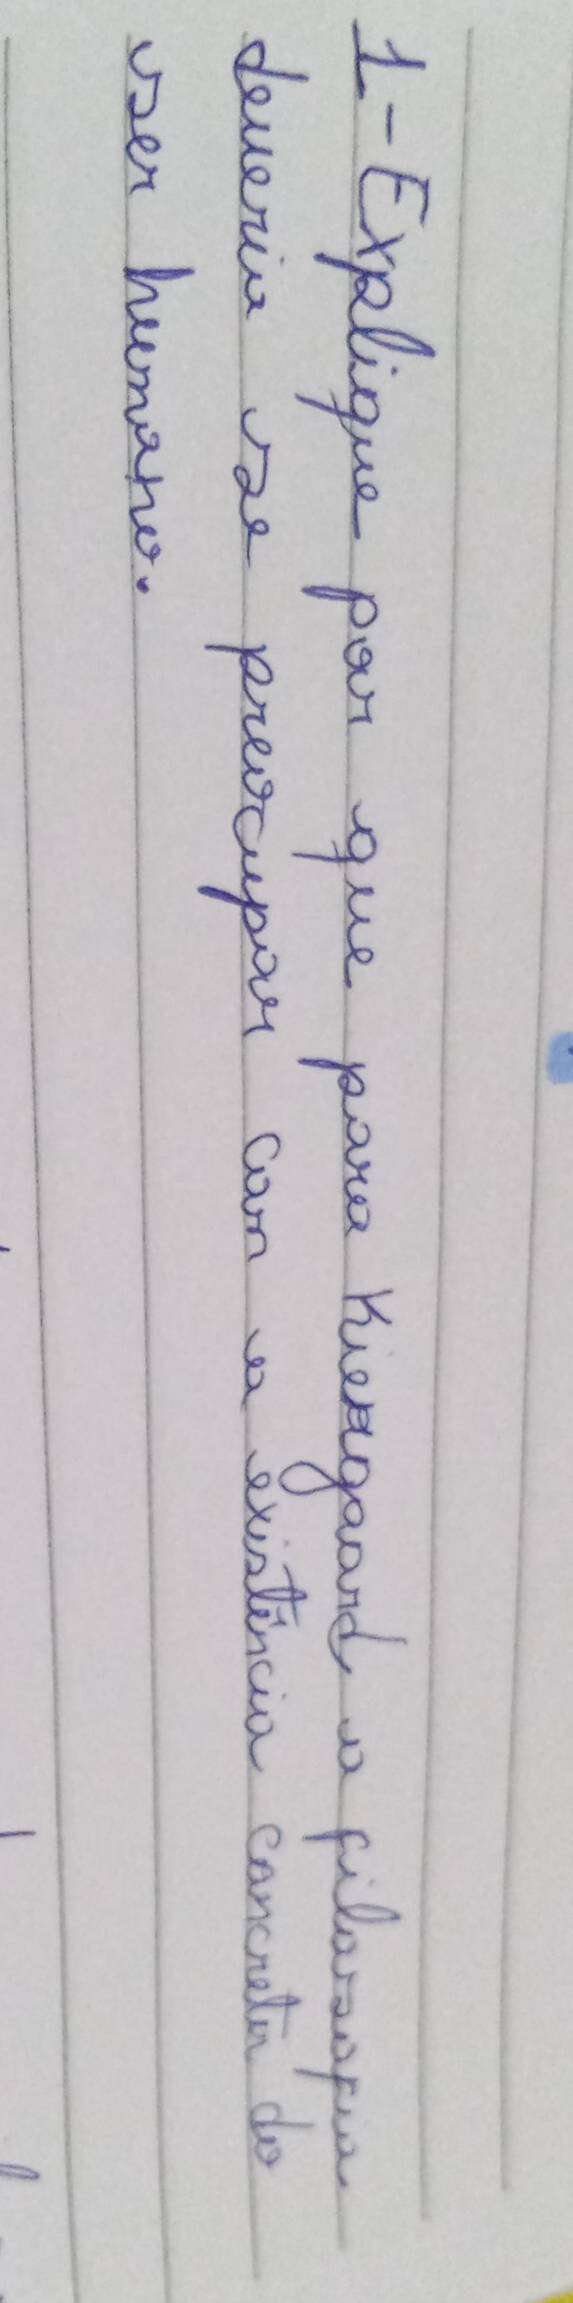 1-Explique por que para Kiergaard a filosofia
deveria se preocupar com a existência concreta do
ser humano.